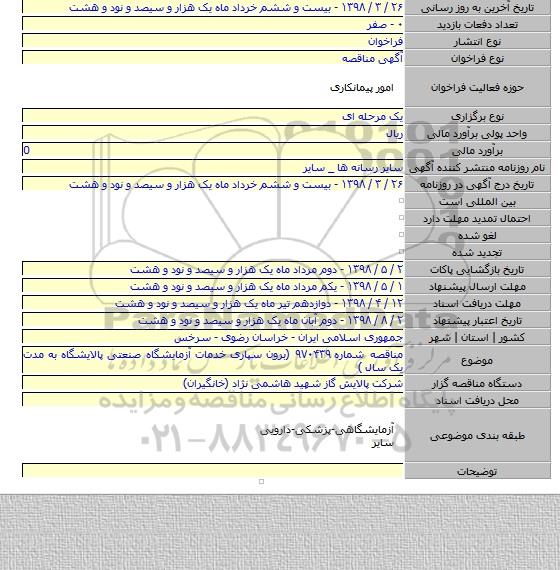 تاریخ آخرین به روز رسانی ۲۶ / ۳ / ۱۳۹۸ - بیست و ششم خرداد ماه یک هزار و سیصد و نود و هشت
تعداد دفعات بازدید ۰ - صفر
نوع انتشار فراخوان
نوع فراخوان آگهی مناقصه
حوزه فعالیت فراخوان امور پیمانکاری
نوع برگزاری یک مرحله ای
واحد پولی برآورد مالی ریال
برآورد مالی 0
نام روزنامه منتشر کننده آگهی سایر رسانه ها _ سایر
تاریخ درج آگهی در روزنامه ۲۶ / ۳ / ۱۳۹۸ - بیست و ششم خرداد ماه یک هزار و سیصد و نود و هشت
بین المللی است
احتمال تمدید مهلت دارد
لغو شده
تجدید شده
تاریخ بازگشایی پاکات ۲ / ۵ / ۱۳۹۸ - دوم مرداد ماه یک هزار و سیصد و نود و هشت
مهلت ارسال پیشنهاد ۱ / ۵ / ۱۳۹۸ - یکم مرداد ماه یک هزار و سیصد و نود و هشت
مهلت دریافت اسناد ۱۲ / ۴ / ۱۳۹۸ - دوازدهم تیر ماه یک هزار و سیصد و نود و هشت
تاریخ اعتبار پیشنهاد ۲ / ۸ / ۱۳۹۸ - دوم آبان ماه یک هزار و سیصد و نود و هشت
کشور | استان | شهر جمهوری اسلامی ایران - خراسان رضوی - سرخس
موضوع مناقصه شماره ۹۷۰۴۳۹ (برون سپاری خدمات آزمایشگاه صنعتی پالایشگاه به مدت
یک سال )
دستگاه مناقصه گزار شرکت پالایش گاز شهید هاشمی نژاد (خانگیران)
محل دریافت اسناد
طبقه بندی موضوعی آزمایشگاهی-پزشکی-دارویی
سایر
توضیحات
پایگاه اطلاع رسانی مناقصه و مزایده
۰۲۱-۸۸۳۴۹۶۷۰-۵